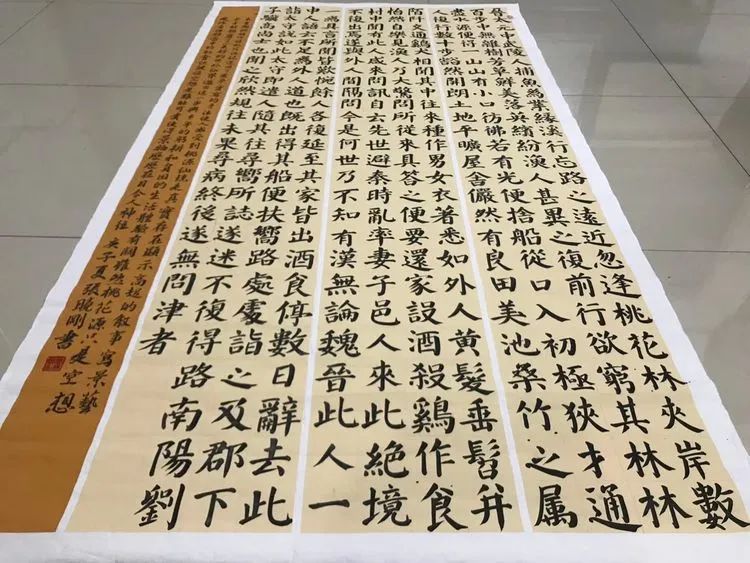 晉太元中武陵人捕魚為業緣溪行忘路之遠近忽逢桃花林夾岸數
百步中無雜樹芳草鮮美落英繽紛漁人甚異之復前行欲窮其林林
盡水源便得一山山有小口彷彿若有光便捨船從口入初極狹才通
人復行數十步豁然開朗土地平曠屋舍儼然有良田美池桑竹之属
陌阡交通鷄犬相聞其中往來種作男女衣著悉如外人黃髮垂髫并
怡然自樂見漁人乃大驚問所從來具答之便要還家設酒殺鷄作食
村中聞有此人咸來問訊自云先世避秦時亂率妻子邑人來此絕境
不復出焉遂與外人間隔問今是何世乃不知有漢無論魏晉此人一
一為具言所聞皆歎惋餘人各復延至其家皆出酒食停數日辭去此
中人語云不足為外人道也既出得其船便扶嚮路處處詣之及郡下
詣太守說如此太守即遣人隨其往尋嚮所誌遂迷不復得路南陽劉
子驥高尚士也聞之欣然規往未果尋病終後遂無問津者
受到桃源仙境是真實存在顯示高超的敘事寫景藝
年的躬耕和貧困的生活體驗有關雖然桃花源只是空想
使得景物歷歷在目令人神往 庚子夏張曉剛書